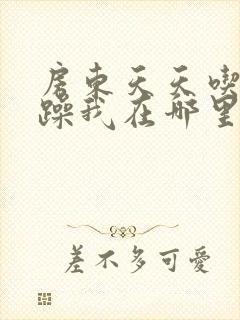 房东天天喫
躁我在哪里
差不多可愛